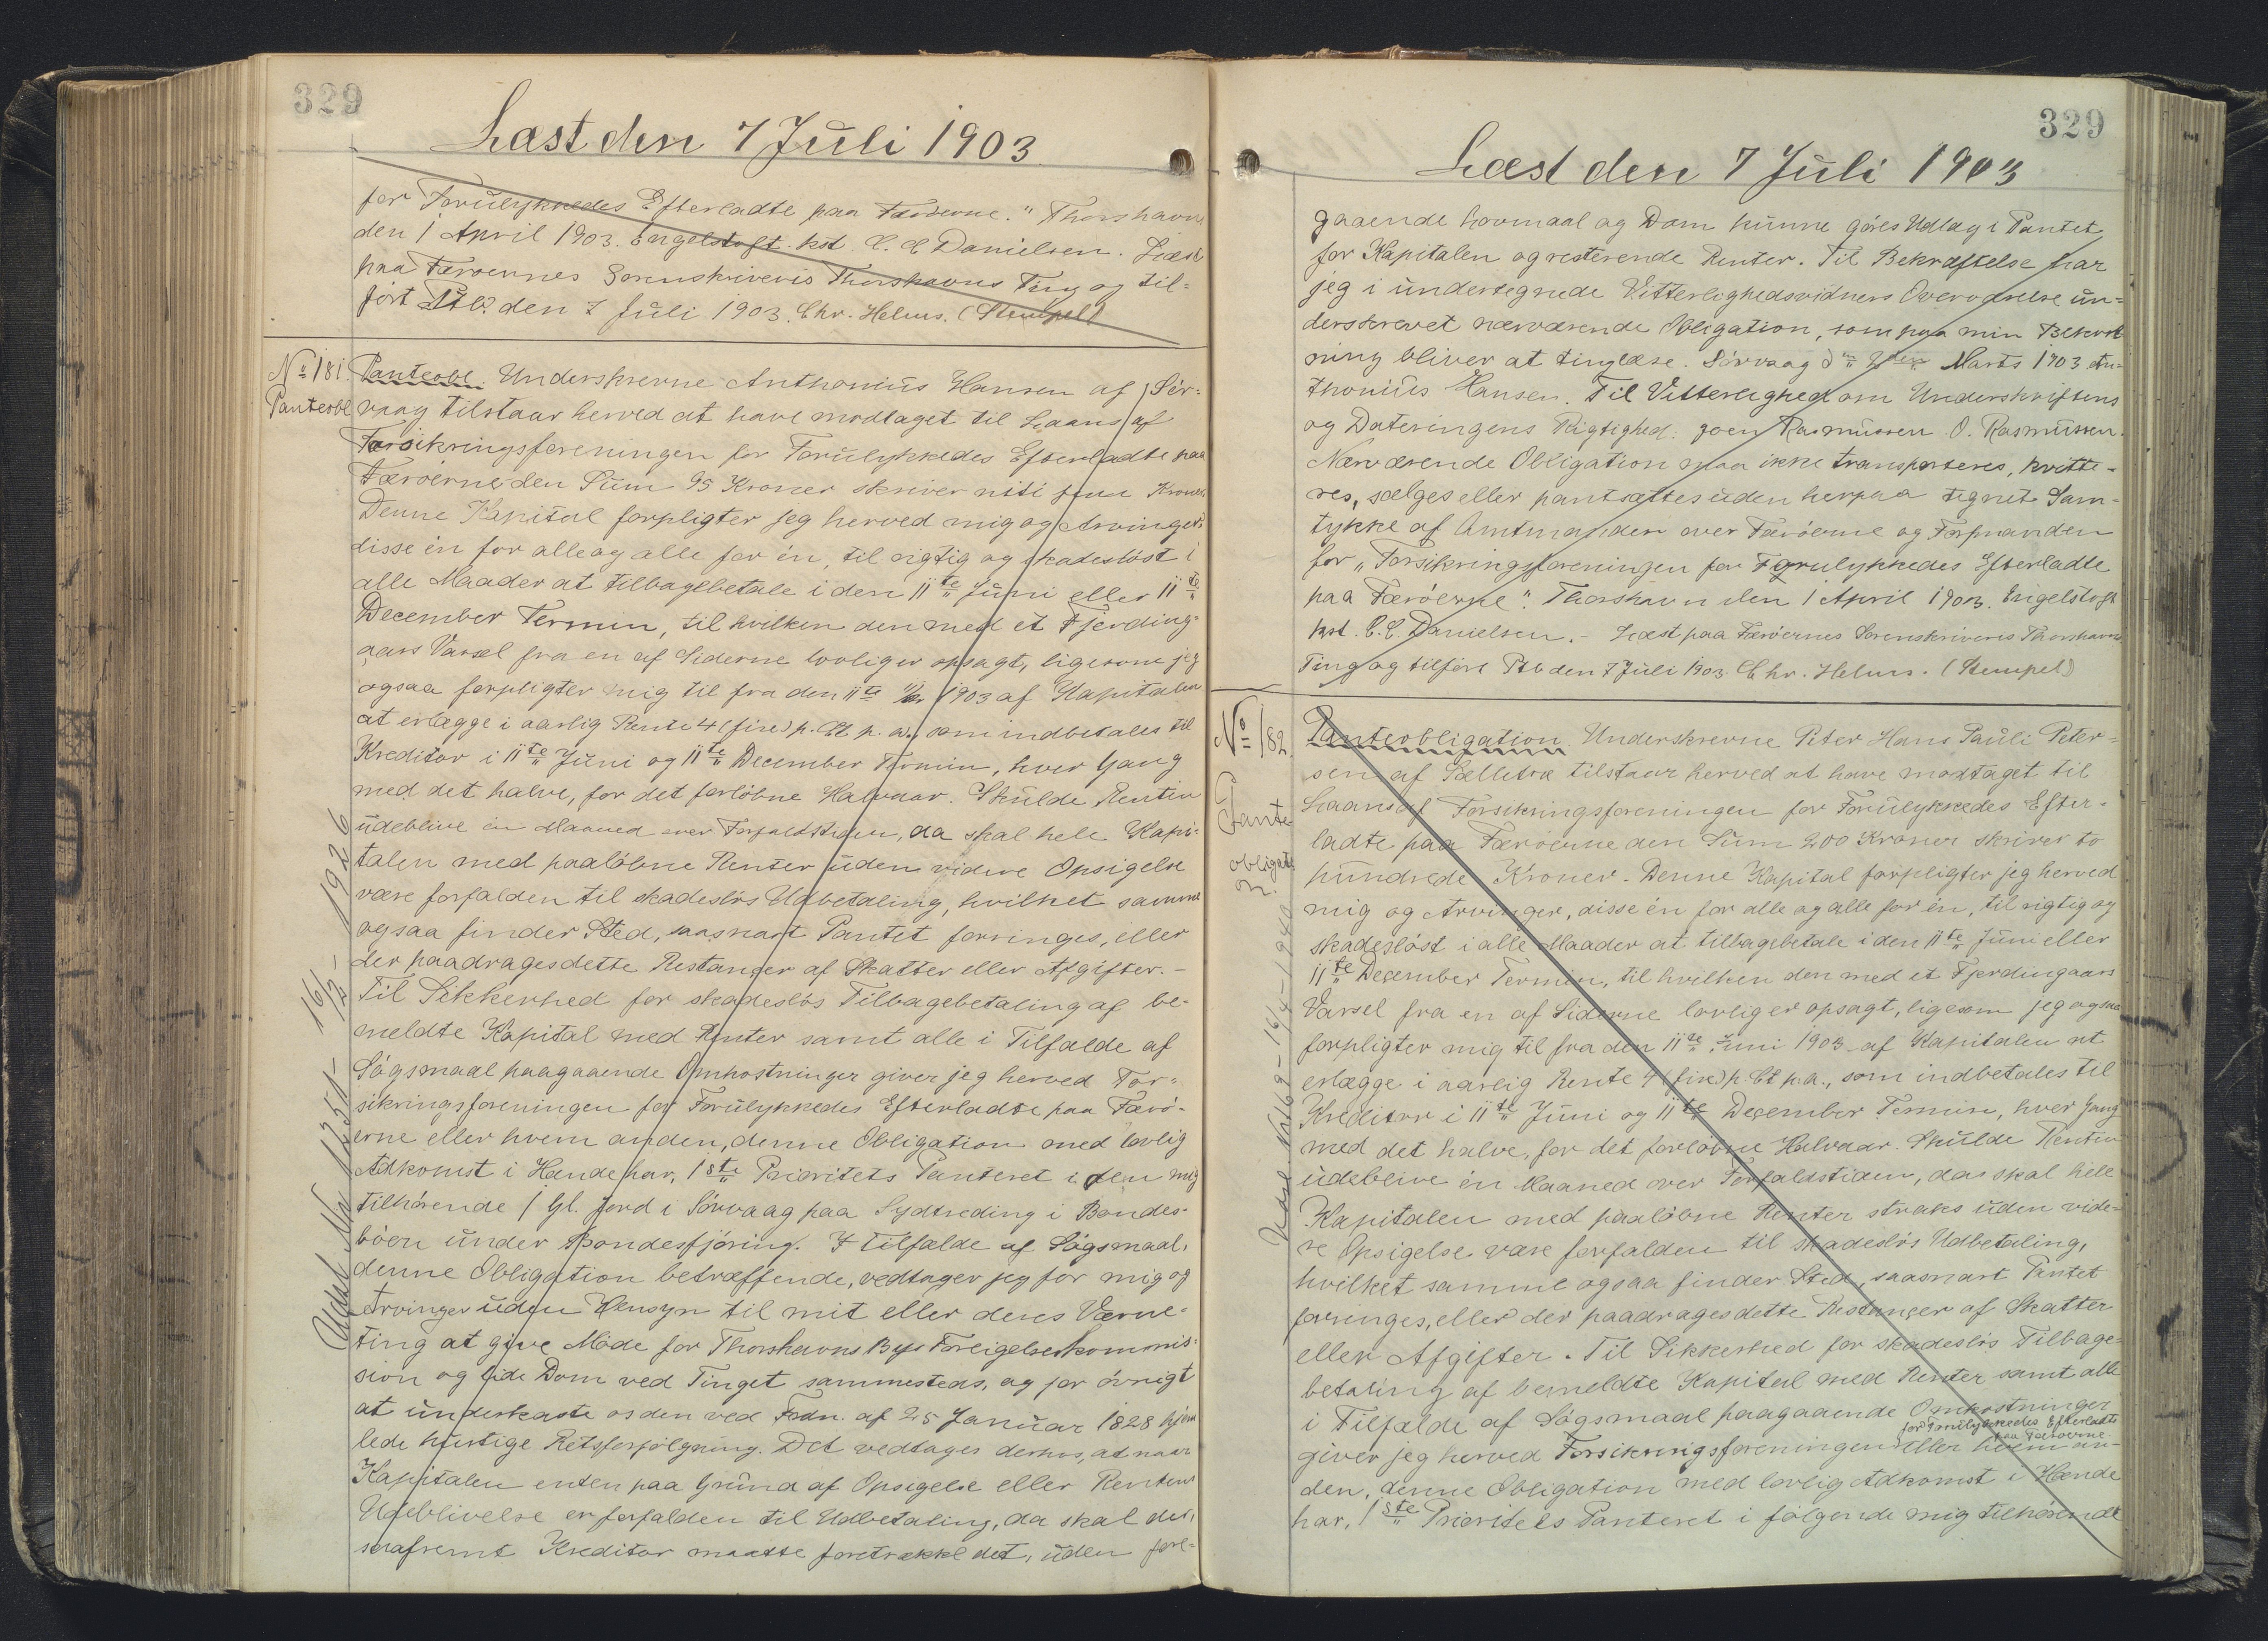 329
Læst den 7 Juli 1903
for Forulykkedes Efterladte paa Færøerne." Thorshavn
den 1 April 1903. Engelstoft. kst. C. C. Danielsen. Læst
paa Færøernes Sorenskriveris Thorshavns Ting og til-
ført Ptb. den 7 Juli 1903. Chr. Helms. (Stempel)
No 181.
Panteobl
Panteobl. Underskrevne Anthonius Hansen af Sør-
vaag tilstaar herved at have modtaget til Laans af
Forsikringsforeningen for Forulykkedes Efterladte paa
Færøerne den Sum 95 Kroner skriver niti fem Kroner.
Denne Kapital forpligter jeg herved mig og Arvinger,
disse én for alle og alle for én, til rigtig og skadesløst i
alle Maader at tilbagebetale i den 11te Juni eller 11te
December Termin, til hvilken den med et Fjerding-
aars Varsel fra en af Siderne lovlig er opsagt, ligesom jeg
ogsaa forpligter mig til fra den 11te 1903 af Kapitalen
at erlægge i aarlig Rente 4 (fire) p. Ct. p. a., som indbetales til
Kreditor i 11te Juni og 11te December Termin, hver Gang
med det halve, for det forløbne Halvaar. Skulde Renten
udeblive én Maaned over Forfaldstiden, da skal hele Kapi-
talen med paaløbne Renter uden videre Opsigelse
være forfalden til skadesløs Udbetaling, hvilket samme
ogsaa finder Sted, saasnart Pantet forringes, eller
der paadrages dette Restancer af Skatter eller Afgifter. -
Til Sikkerhed for skadesløs Tilbagebetaling af be-
meldte Kapital med Renter samt alle i Tilfælde af
Søgsmaal paagaaende Omkostninger giver jeg herved For-
sikringsforeningen for Forulykkedes Efterladte paa Færø-
erne eller hvem anden, denne Obligation med lovlig
Adkomst i Hænde har, 1ste Prioritets Panteret i den mig
tilhørende 1 Gl. Jord i Sørvaag paa Sydtreding i Bondes-
bøen under Bondesfjøring. I Tilfælde af Søgsmaal,
denne Obligation betræffende, vedtager jeg for mig og
Arvinger uden Hensyn til mit eller deres Værne-
ting at give Møde for Thorshavns Bys Forligelseskommis-
sion og lide Dom ved Tinget sammesteds, og for øvrigt
at underkaste os den ved Frdn. af 25 Januar 1828 hjem
lede hurtige Retsforfølgning. Det vedtages derhos, at naar
Kapitalen enten paa Grund af Opsigelse eller Rentens
Udeblivelse er forfalden til Udbetaling, da skal der,
saafremt Kreditor maatte foretrække det, uden fore-
Udsl. No 1251 - 16/12 - 1926
329
Læst den 7 Juli 1903
gaaende Lovmaal og Dom kunne gøres Udlæg i Pantet
for Kapitalen og resterende Renter. Til Bekræftelse har
jeg i undertegnede Vitterlighedsvidners Overværelse un-
derskrevet nærværende Obligation, som paa min Bekost
ning bliver at tinglæse. Sørvaag Marts 1903 An-
thonius Hansen. Til Vitterlighed om Underskriftens
og Dateringens Rigtighed: Joen Rasmussen. O. Rasmussen.
Nærværende Obligation maa ikke transporteres, kvitte-
res, sælges eller pantsættes uden herpaa tegnet Sam-
tykke af Amtmanden over Færøerne og Formanden
for "Forsikringsforeningen for Forulykkedes Efterladte
paa Færøerne". Thorshavn den 1 April 1903. Engelstoft
kst. C. C. Danielsen. - Læst paa Færøernes Sorenskriveris Thorshavns
Ting og tilført Ptb den 7 Juli 1903. Chr. Helms. (Stempel)
No 182.
Pante
obligati
Panteobligation. Underskrevne Peter Hans Pauli Peter-
sen af Selletræ tilstaar herved at have modtaget til
Laans af Forsikringsforeningen for Forulykkedes Efter-
ladte paa Færøerne den Sum 200 Kroner skriver to
hundrede Kroner. Denne Kapital forpligter jeg herved
mig og Arvinger, disse én for alle og alle for én, til rigtig og
skadesløst i alle Maader at tilbagebetale i den 11te Juni eller
11te December Termin, til hvilken den med et Fjerdingaars
Varsel fra én af Siderne lovlig er opsagt, ligesom jeg ogsaa
forpligter mig til fra den 11te Juni 1903 af Kapitalen at
erlægge i aarlig Rente 4 (fire) p. Ct p.a., som indbetales til
Kreditor i 11te Juni og 11te December Termin, hver Gang
med det halve, for det forløbne Halvaar. Skulde Renten
udeblive én Maaned over Forfaldstiden, da skal hele
Kapitalen med paaløbne Renter straks uden vide-
re Opsigelse være forfalden til skadesløs Udbetaling,
hvilket samme ogsaa finder Sted, saasnart Pantet
forringes, eller der paadrages dette Restancer af Skatter
eller Afgifter. Til Sikkerhed for skadesløs Tilbage-
betaling af bemeldte Kapital med Renter samt alle
i Tilfælde af Søgsmaal paagaaende Omkostninger
for Forulykkedes Efterladte
paa Færøerne
giver jeg herved Forsikringsforeningen eller hvem an-
den, denne Obligation med lovlig Adkomst i Hænde
har, 1ste Prioritets Panteret i følgende mig tilhørende
No 169 - 16/4 - 1940